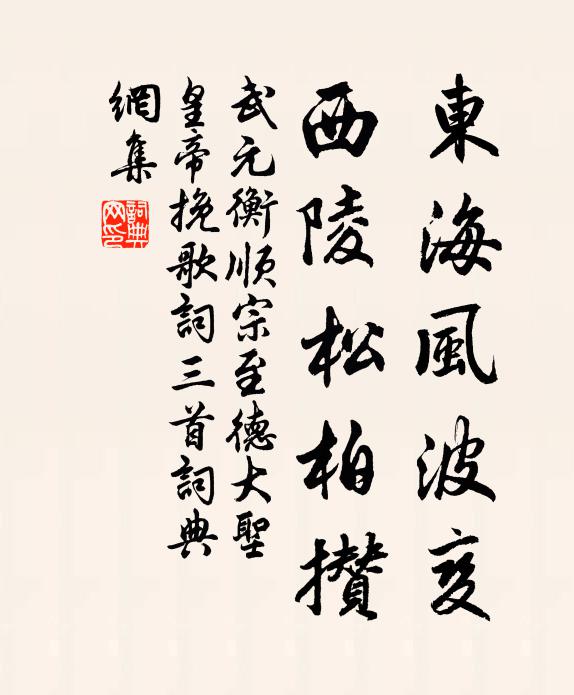 東海風波变
西陵松柏攢
武元衡順宗至德大聖
皇帝挽歌詞三首詞典
網集
詞典
网印